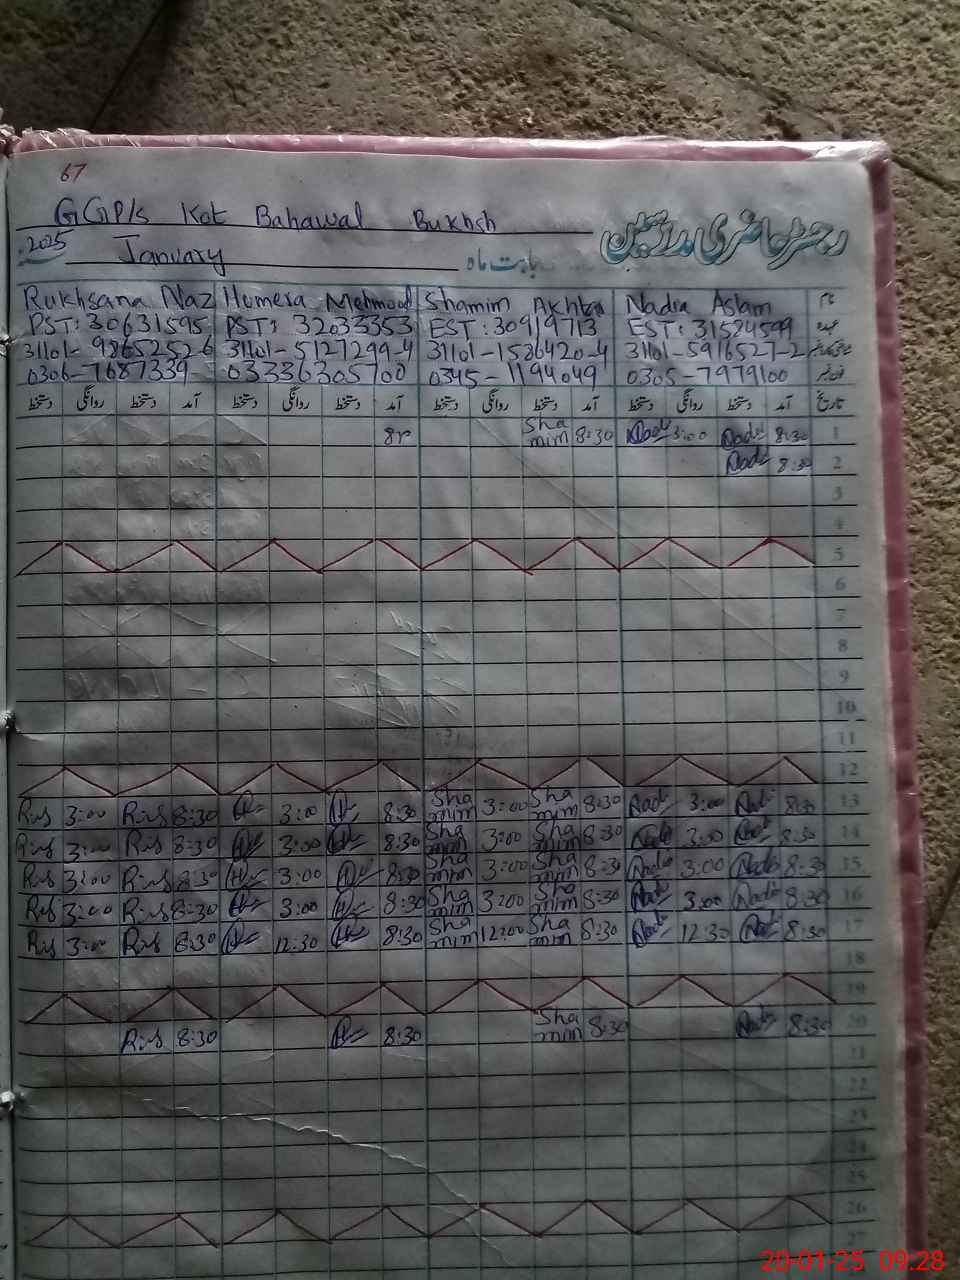 67
GGP/s Kot Bahawal Bukhsh
رجسٹر حاضری مدرسین
2025 January بابت ماہ
Rukhsana Naz Humera Mehmood Shamim Akhter Nadia Aslam نام
PST: 30631595 PST: 32033353 EST: 30919713 EST: 31584599 عہدہ
31101-9865252-6 31101-5127299-4 31101-1586420-4 31101-5916527-2
0306-7687339 03336305700 0345-1194049 0305-7979100 فون نمبر
دستخط روانگی دستخط آمد دستخط روانگی دستخط آمد دستخط روانگی دستخط آمد دستخط روانگی دستخط آمد تاریخ
Shamim 8:30 Nadi 3:00 Nadi 8:30 1
Nadi 8:30 2
3
4
5
6
7
8
9
10
11
12
3:00 8:30 3:00 8:30 Shamim 3:00 Shamim 8:30 Nadi 3:00 Nadi 8:30 13
3:00 8:30 3:00 8:30 Shamim 3:00 Shamim 8:30 Nadi 3:00 Nadi 8:30 14
3:00 8:30 3:00 8:30 Shamim 3:00 Shamim 8:30 Nadi 3:00 Nadi 8:30 15
3:00 8:30 3:00 8:30 Shamim 3:00 Shamim 8:30 Nadi 3:00 Nadi 8:30 16
3:00 8:30 12:30 8:30 Shamim 12:00 Shamim 8:30 Nadi 12:30 Nadi 8:30 17
18
19
8:30 8:30 Shamim 8:30 Nadi 8:30 20
21
22
23
24
25
26
27
20-01-25 09:28